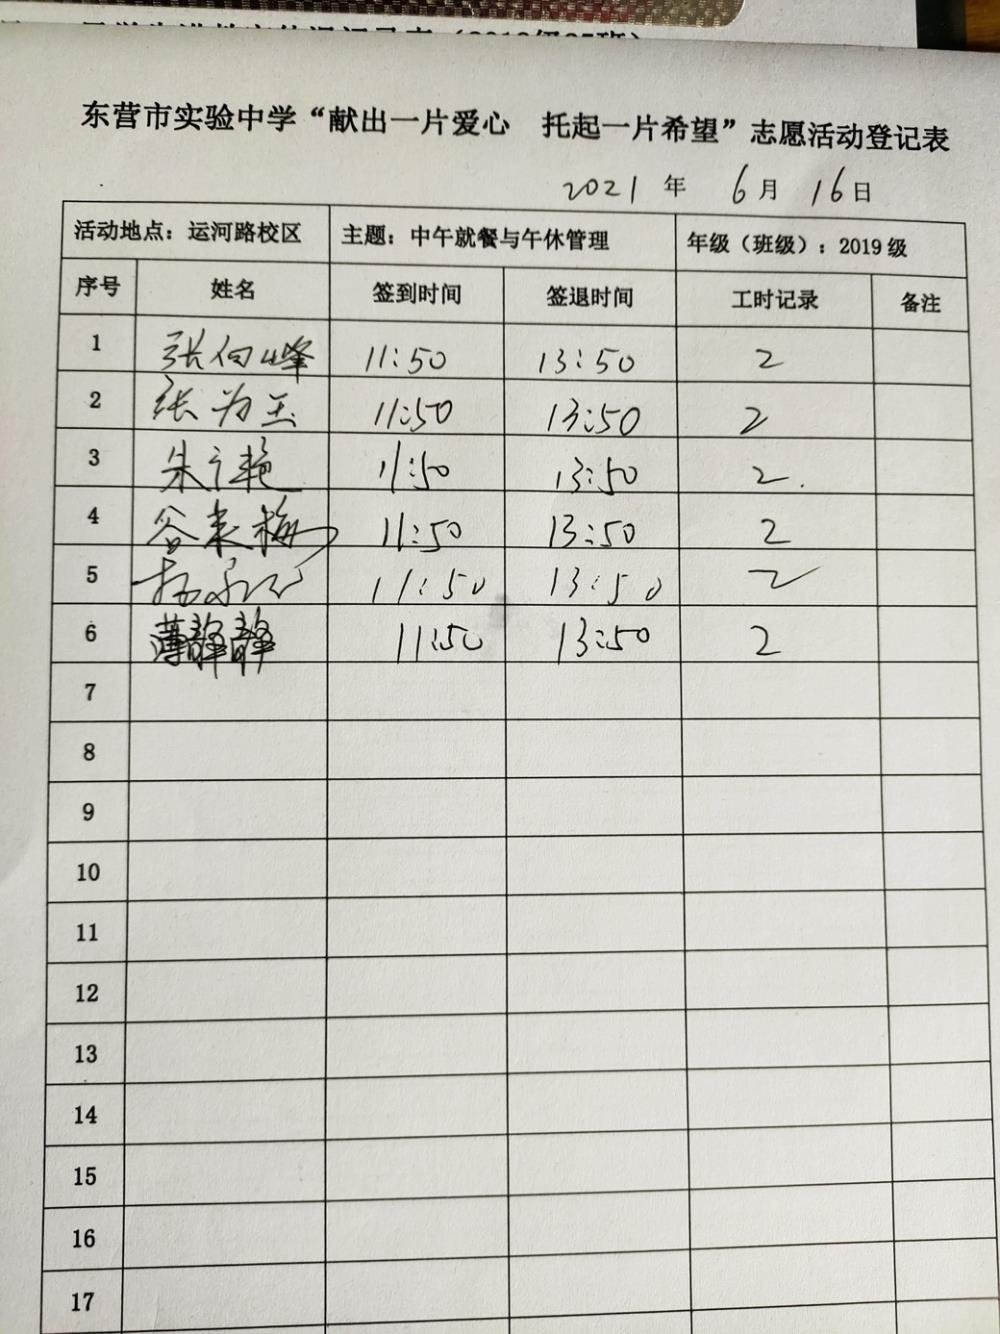 东营市实验中学“献出一片爱心 托起一片希望”志愿活动登记表
2021 年 6 月 16 日
活动地点：运河路校区 主题：中午就餐与午休管理 年级（班级）：2019 级
序号 姓名 签到时间 签退时间 工时记录 备注
1 张向峰 11:50 13:50 2
2 张为玉 11:50 13:50 2
3 朱 艳 11:50 13:50 2.
4 谷 梅 11:50 13:50 2
5 11:50 13:50 2
6 薄静静 11:50 13:50 2
7
8
9
10
11
12
13
14
15
16
17